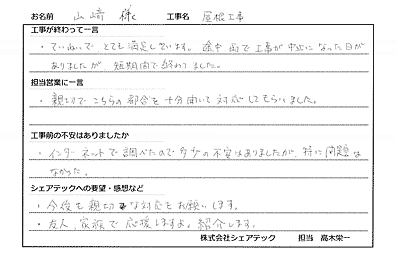 お名前 山﨑 様 工事名 屋根工事
工事が終わって一言
・ていねいで とても満足しています。途中雨で工事が中止になった日が
ありましたが 短期間で終わりました。
担当営業に一言
・親切で こちらの都合を十分聞いて対応してもらいました。
工事前の不安はありましたか
・インターネットで調べたので多少の不安はありましたが、特に問題は
なかった。
シェアテックへの要望・感想など
・今後も親切な対応をお願いします。
・友人、家族で応援しますよ。紹介します。
株式会社シェアテック 担当 高木栄一